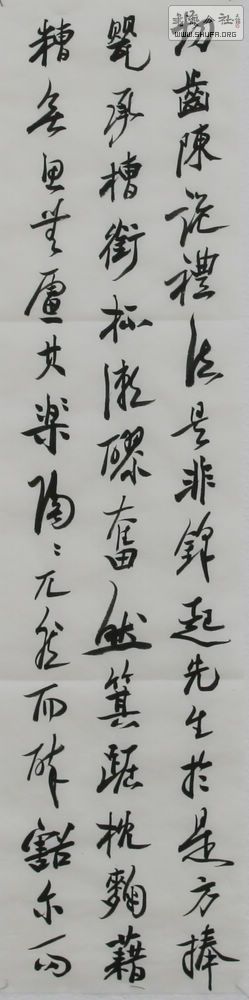 切齒陳說禮法是非鋒起先生於是方捧
甖承槽銜杯漱醪奮然箕踞枕麴藉
糟無思無慮其樂陶〻兀然而醉豁尔而
書法公社
WWW.SHUFA.ORG